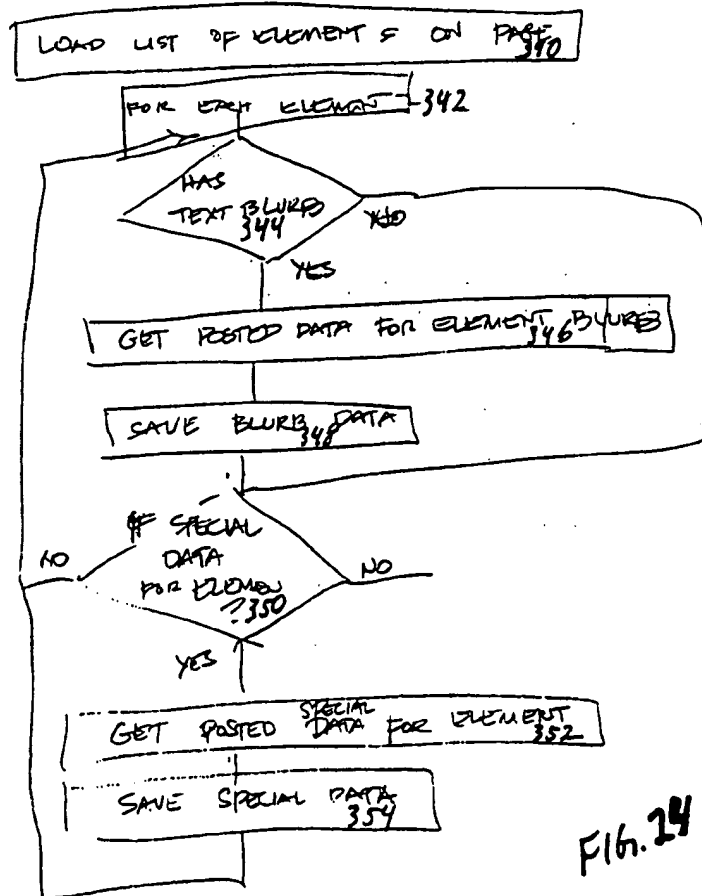 LOAD LIST OF ELEMENTS ON PAGE
340
FOR EACH ELEMENT 342
HAS
TEXT BLURB
344
NO
YES
GET POSTED DATA FOR ELEMENT BLURB
346
SAVE BLURB DATA
348
IF SPECIAL
DATA
FOR ELEMEN
? 350
NO
NO
YES
SPECIAL
GET POSTED DATA FOR ELEMENT
352
SAVE SPECIAL DATA
354
FIG. 24